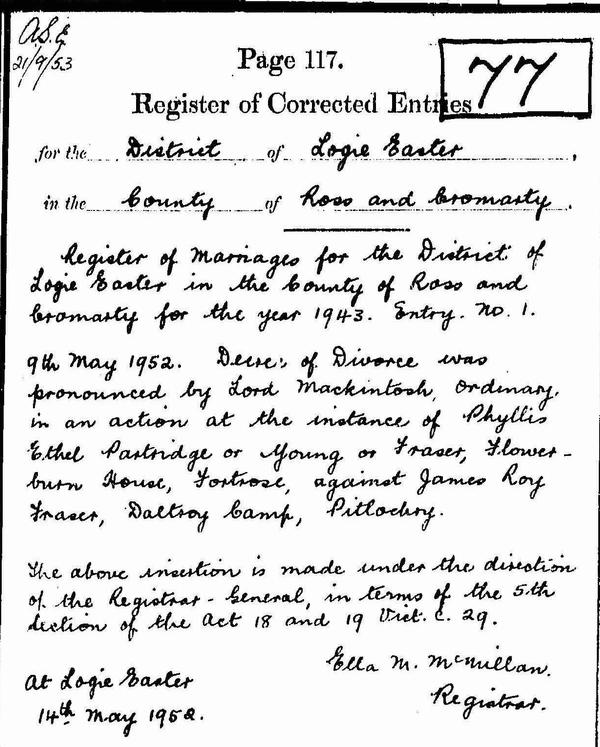 A.S.E.
21/9/53
Page 117.
77
Register of Corrected Entries
for the District of Logie Easter,
in the County of Ross and Cromarty.
Register of Marriages for the District of
Logie Easter in the County of Ross and
Cromarty for the year 1943. Entry. No. 1.
9th May 1952. Decree of Divorce was
pronounced by Lord Mackintosh, Ordinary.
in an action at the instance of Phyllis
Ethel Partridge or Young or Fraser, Flower-
burn House, Fortrose, against James Roy
Fraser, Daltroy Camp, Pitlochry.
The above insertion is made under the direction
of the Registrar-General, in terms of the 5th
Section of the Act 18 and 19 Vict. C. 29.
Ella M. McMillan.
At Logie Easter
Registrar.
14th May 1952.